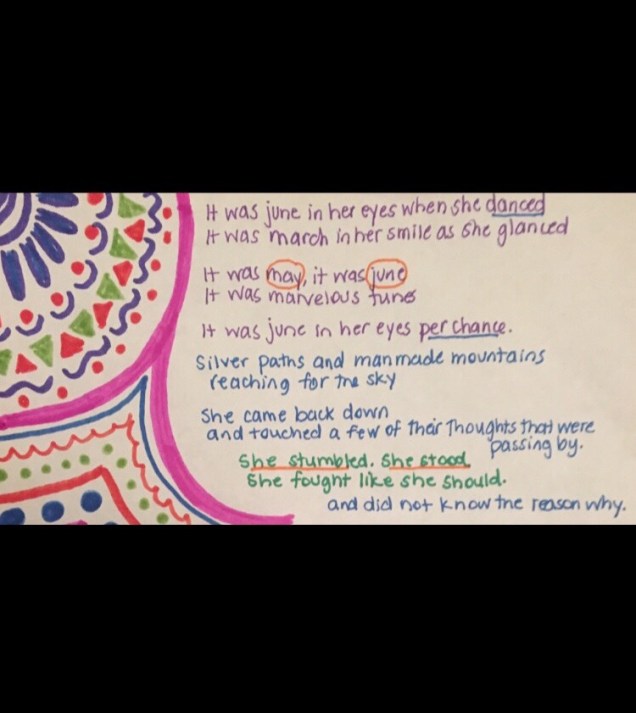 It was june in her eyes when she danced
It was march in her smile as she glanced
It was may, it was june
It was marvelous tunes
It was june in her eyes per chance.
Silver paths and manmade mountains
reaching for the sky
She came back down
and touched a few of their thoughts that were
passing by.
She stumbled. She stood
She fought like she should.
and did not know the reason why.